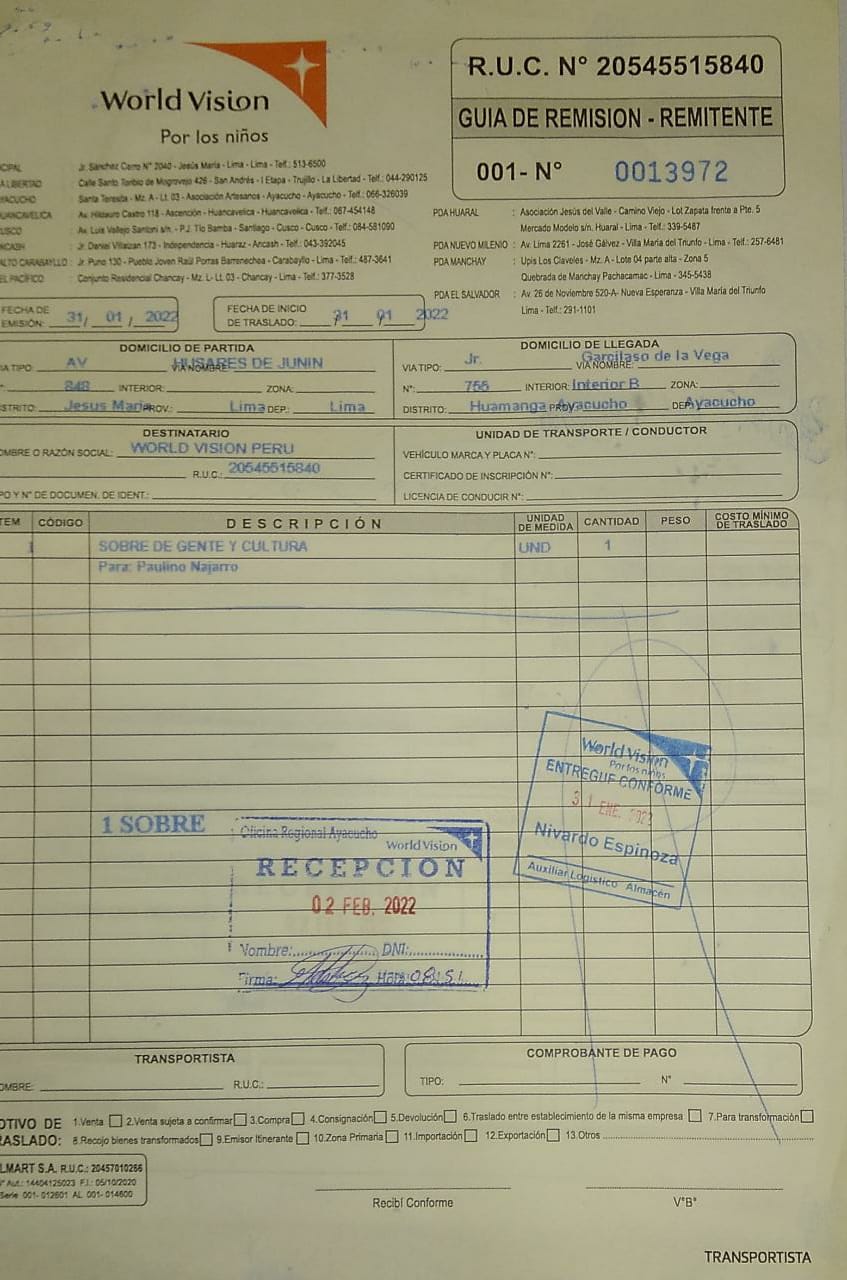 World Vision
Por los niños
R.U.C. N° 20545515840
GUIA DE REMISION - REMITENTE
001- N° 0013972
Jr. Sánchez Cerro N° 2040 - Jesús María - Lima - Lima - Telf.: 513-6500
Calle Santo Toribio de Mogrovejo 426 - San Andrés - I Etapa - Trujillo - La Libertad - Telf.: 044-290125
Santa Teresita - Mz. A - Lt. 03 - Asociación Artesanos - Ayacucho - Ayacucho - Telf.: 066-326039
Av. Hildauro Castro 118 - Ascención - Huancavelica - Huancavelica - Telf.: 067-454148
Av. Luis Vallejo Santoni s/n - P.J. Tío Bamba - Santiago - Cusco - Cusco - Telf.: 084-581090
Jr. Daniel Villaizan 173 - Independencia - Huaraz - Ancash - Telf.: 043-392045
ALTO CARABAYLLO : Jr. Puno 130 - Pueblo Joven Raúl Porras Barrenechea - Carabayllo - Lima - Telf.: 487-3641
Conjunto Residencial Chancay - Mz. L- Lt. 03 - Chancay - Lima - Telf.: 377-3528
PDA HUARAL : Asociación Jesús del Valle - Camino Viejo - Lot Zapata frente a Pte. 5
Mercado Modelo s/n. Huaral - Lima - Telf.: 339-5487
PDA NUEVO MILENIO : Av. Lima 2261 - José Gálvez - Villa María del Triunfo - Lima - Telf.: 257-6481
PDA MANCHAY : Upis Los Claveles - Mz. A - Lote 04 parte alta - Zona 5
Quebrada de Manchay Pachacamac - Lima - 345-5438
PDA EL SALVADOR : Av. 26 de Noviembre 520-A- Nueva Esperanza - Villa María del Triunfo
Lima - Telf.: 291-1101
FECHA DE
EMISIÓN: 31/ 01 / 2022
FECHA DE INICIO
DE TRASLADO: 31 01 2022
DOMICILIO DE PARTIDA
TIPO: AV VIA NOMBRE: HUSARES DE JUNIN
848 INTERIOR: ZONA:
Jesus Maria PROV.: Lima DEP.: Lima
DOMICILIO DE LLEGADA
VIA TIPO: Jr. VIA NOMBRE: Garcilaso de la Vega
N°: 755 INTERIOR: Interior B ZONA:
DISTRITO: Huamanga PROV. Ayacucho DEP. Ayacucho
DESTINATARIO
O RAZÓN SOCIAL: WORLD VISION PERU
R.U.C.: 20545515840
Y N° DE DOCUMEN. DE IDENT.:
UNIDAD DE TRANSPORTE / CONDUCTOR
VEHÍCULO MARCA Y PLACA N°:
CERTIFICADO DE INSCRIPCIÓN N°:
LICENCIA DE CONDUCIR N°:
CÓDIGO DESCRIPCIÓN UNIDAD DE MEDIDA CANTIDAD PESO COSTO MÍNIMO DE TRASLADO
1 SOBRE DE GENTE Y CULTURA UND 1
Para: Paulino Najarro
World Vision
Por los niños
ENTREGUE CONFORME
31 ENE. 2022
Nivardo Espinoza
Auxiliar Logistico Almacén
1 SOBRE
Oficina Regional Ayacucho
World Vision
RECEPCION
02 FEB. 2022
Nombre: DNI:
Firma: Hora: 08:51
TRANSPORTISTA
R.U.C.:
COMPROBANTE DE PAGO
TIPO: N°
1.Venta 2.Venta sujeta a confirmar 3.Compra 4.Consignación 5.Devolución 6.Traslado entre establecimiento de la misma empresa 7.Para transformación
8.Recojo bienes transformados 9.Emisor Itinerante 10.Zona Primaria 11.Importación 12.Exportación 13.Otros
S.A. R.U.C.: 20457010256
Aut.: 14404125023 F.I.: 05/10/2020
Serie 001- 012601 AL 001- 014600
Recibí Conforme
V°B°
TRANSPORTISTA